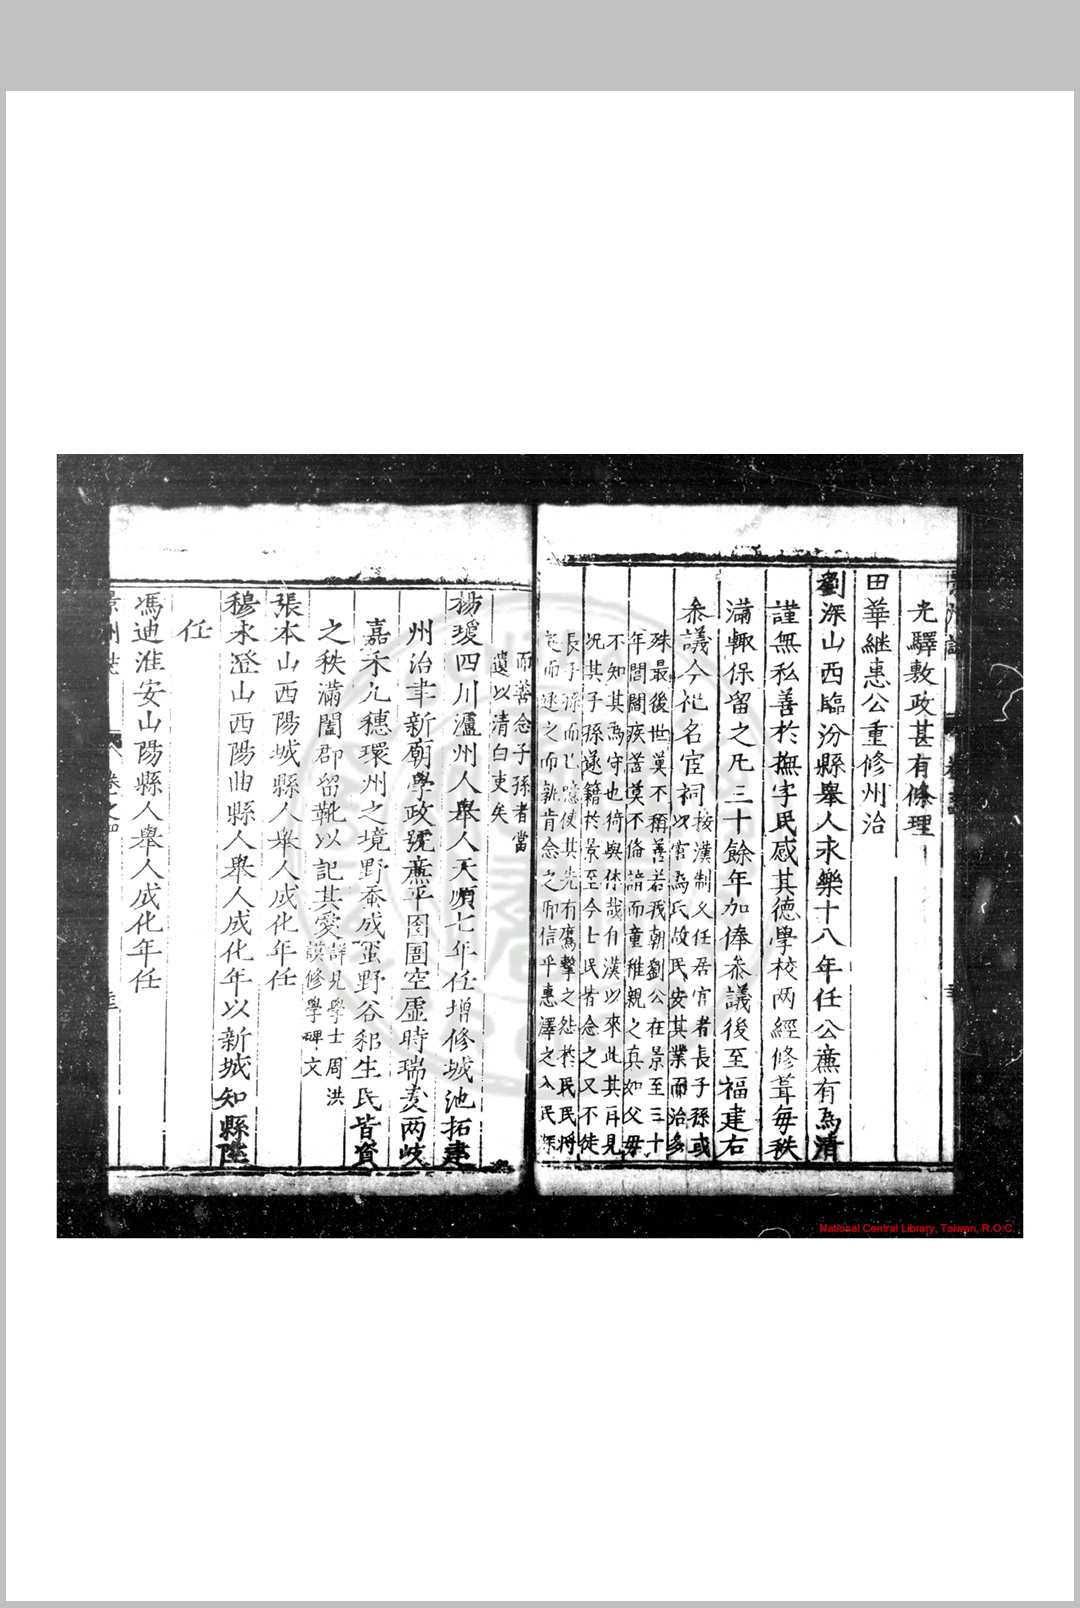 光驛敷政甚有條理
田華繼惠公重修州治
劉深山西臨汾縣舉人永樂十八年任公廉有為清
謹無私善於撫字民感其德學校两經修葺每秩
滿輙保留之凡三十餘年加俸叅議後至福建右
叅議今祀名宦祠
按漢制久任居官者長子孫或
以官為氏故民安其業而治多
殊最後世莫不稱善若我朝劉公在景至三十
年間閭疾苦莫不備諳而童稚親之真如父母
不知其為守也猗與休哉有漢以來此其再見
况其子孫遂籍於景至今士民皆念之又不徒
長子孫而已噫使其先有鷹擊之怨於民民將
之而逐之而孰肯念之卽信乎惠澤之入民深
而善念子孫者當
遺以清白吏矣
楊瑷四川瀘州人舉人天順七年任增修城池拓建
州治聿新廟學政號廉平囹圄空虛時瑞麦两岐
嘉禾九穗環州之境野蚕成蠒野谷郄生民皆資
之秩滿闔郡留靴以記其愛
詳見學士周洪
謨修學碑文
張本山西陽城縣人舉人成化年任
穆永澄山西陽曲縣人舉人成化年以新城知縣陞
任
馮迪淮安山陽縣人舉人成化年任
景州誌
卷之四
National Central Library, Taiwan, R.O.C.